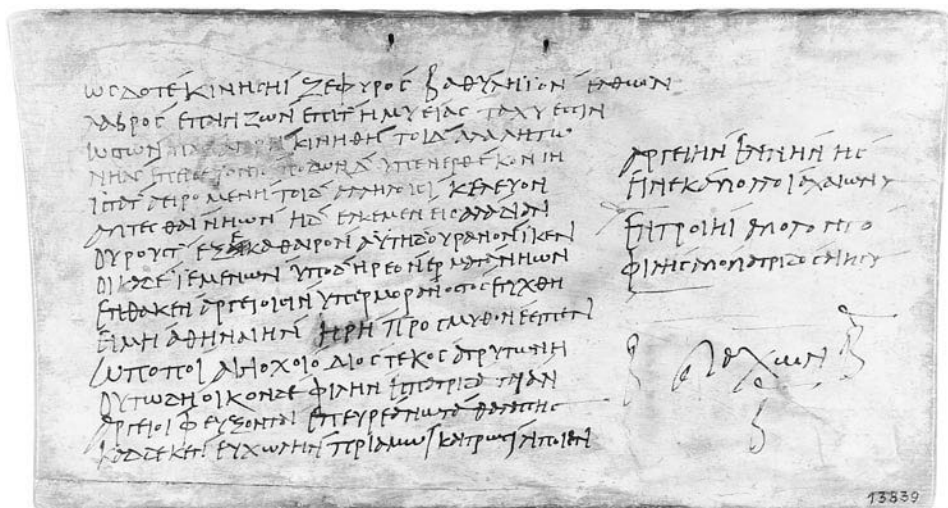 ΩΣΔΟΤΕΚΙΝΗΣΗΙ ΖΕΦΥΡΟΣ ΒΑΘΥΛΗΙΟΝ ΕΛΘΩΝ
ΛΑΒΡΟΣ ΕΠΑΙΓΙΖΩΝ ΕΠΙΤΗΜΥΕΙΑΣΤΑΧΥΕΣΙΝ
ΩΣΤΩΝ ΚΙΝΗΘΗ ΤΟΙΔΑΛΑΛΗΤΩ
ΝΗΑΣ ΠΟΔΩΝΔ ΥΠΕΝΕΡΘΕ ΚΟΝΙΗ
ΙΣΤΑΤ ΑΕΙΡΟΜΕΝΗ ΤΟΙΔ ΑΛΛΗΛΟΙΣΙ ΚΕΛΕΥΟΝ
ΑΠΤΕΣΘΑΙ ΝΗΩΝ ΗΔ ΕΛΚΕΜΕΝ ΕΙΣΑΛΑΔΙΑΝ
ΟΥΡΟΥΣΤ ΕΞΕΚΑΘΑΙΡΟΝ ΑΥΤΗΔΟΥΡΑΝΟΝ ΙΚΕΝ
ΟΙΚΑΔΕ ΙΕΜΕΝΩΝ ΥΠΟΔ ΗΡΕΟΝ ΕΡΜΑΤΑ ΝΗΩΝ
ΕΝΘΑΚΕΝ ΑΡΓΕΙΟΙΣΙΝ ΥΠΕΡΜΟΡΑ ΝΟΣΤΟΣ ΕΤΥΧΘΗ
ΕΙΜΗ ΑΘΗΝΑΙΗΝ ΗΡΗ ΠΡΟΣΜΥΘΟΝ ΕΕΙΠΕΝ
ΩΠΟΠΟΙ ΑΙΓΙΟΧΟΙΟ ΔΙΟΣ ΤΕΚΟΣ ΑΤΡΥΤΩΝΗ
ΟΥΤΩΔΗ ΟΙΚΟΝΔΕ ΦΙΛΗΝ ΕΣΠΑΤΡΙΔΑ ΓΑΙΑΝ
ΑΡΓΕΙΟΙ ΦΕΥΞΟΝΤΑΙ ΕΠΕΥΡΕΑΝΩΤΑ ΘΑΛΑΣΣΗΣ
ΚΑΔΔΕΚΕΝ ΕΥΧΩΛΗΝ ΠΡΙΑΜΩ ΚΑΙΤΡΩΣΙ ΛΙΠΟΙΕΝ
ΑΡΓΕΙΗΝ ΕΛΕΝΗΝ ΗΣ
ΕΙΝΕΚΑ ΠΟΛΛΟΙ ΑΧΑΙΩΝ
ΕΝΤΡΟΙΗΙ ΑΠΟΛΟΝΤΟ
ΦΙΛΗΣ ΑΠΟ ΠΑΤΡΙΔΟΣ ΑΙΗΣ
13839